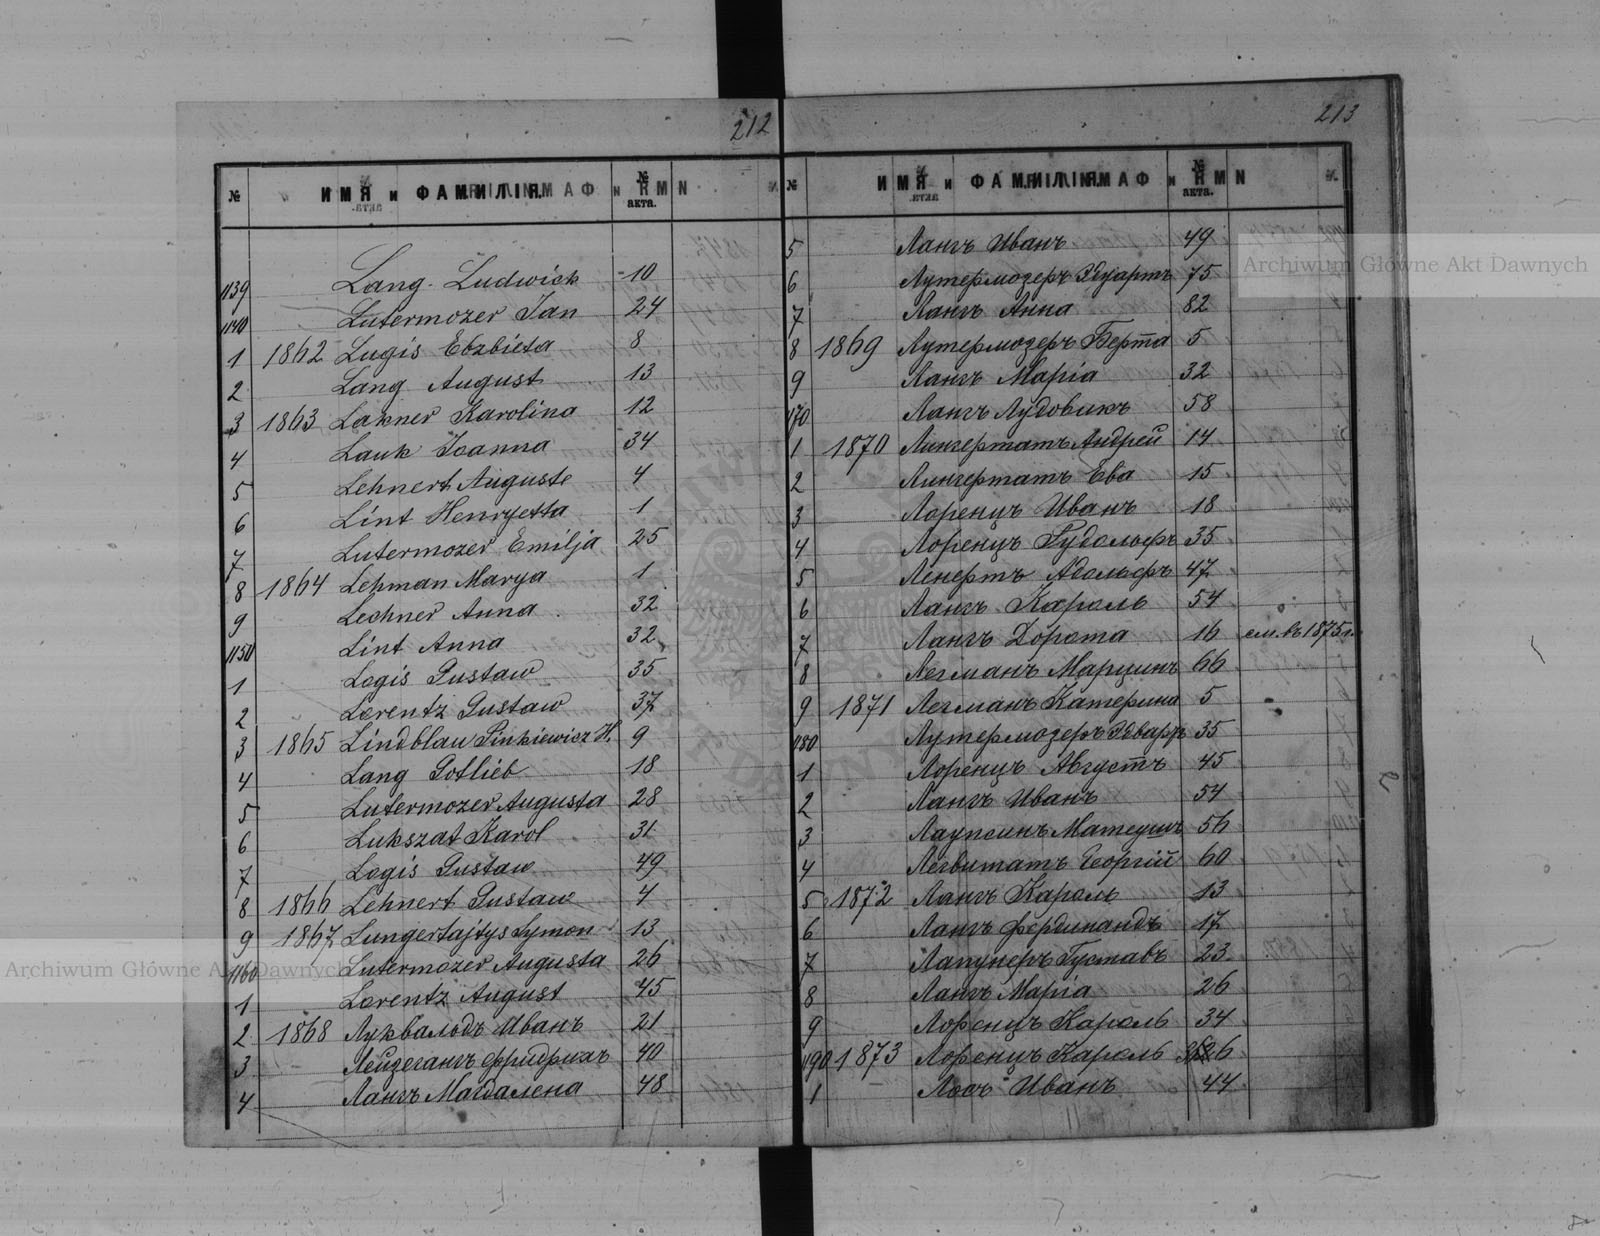 212
№ ИМЯ и ФАМИЛІЯ. № акта.
1139 Lang Ludwick 10
1140 Lutermozer Jan 24
1 1862 Lugis Elzbieta 8
2 Lang August 13
3 1863 Lakner Karolina 12
4 Lauk Joanna 34
5 Lehnert Auguste 4
6 Lint Henryetta 1
7 Lutermozer Emilja 25
8 1864 Lehman Marya 1
9 Lechner Anna 32
1150 Lint Anna 32
1 Logis Gustaw 35
2 Lorentz Gustaw 37
3 1865 Lindblau Pinkiewicz H. 9
4 Lang Gotlieb 18
5 Lutermozer Augusta 28
6 Lukszat Karol 31
7 Logis Gustaw 49
8 1866 Lehnert Gustaw 4
9 1867 Lungertajtys Symon 13
1160 Lutermozer Augusta 26
1 Lorentz August 45
2 1868 Луквальдъ Иванъ 21
3 Лейзегангъ Фридрихъ 40
4 Лангъ Магдалена 48
213
№ ИМЯ и ФАМИЛІЯ. № акта.
5 Лангъ Иванъ 49
6 Лутермозеръ Эдуартъ 75
7 Лангъ Анна 82
8 1869 Лутермозеръ Берта 5
9 Лангъ Марія 32
1170 Лангъ Лудовикъ 58
1 1870 Лингертатъ Андрей 14
2 Лингертатъ Ева 15
3 Лоренцъ Иванъ 18
4 Лоренцъ Рудольфъ 35
5 Ленертъ Адольфъ 47
6 Лангъ Кароль 54
7 Лангъ Дорота 16 см. въ 1875 г.
8 Легманъ Марцинъ 66
9 1871 Легманъ Катерина 5
1180 Лутермозеръ Эдваръ 35
1 Лоренцъ Августъ 45
2 Лангъ Иванъ 54
3 Лаупсинъ Матеушъ 56
4 Легвитатъ Георгій 60
5 1872 Лангъ Кароль 13
6 Лангъ Фердинандъ 17
7 Лапунеръ Густавъ 23
8 Лангъ Марія 26
9 Лоренцъ Кароль 34
1190 1873 Лоренцъ Кароль 26
1 Лосъ Иванъ 44
Archiwum Główne Akt Dawnych
Archiwum Główne Akt Dawnych